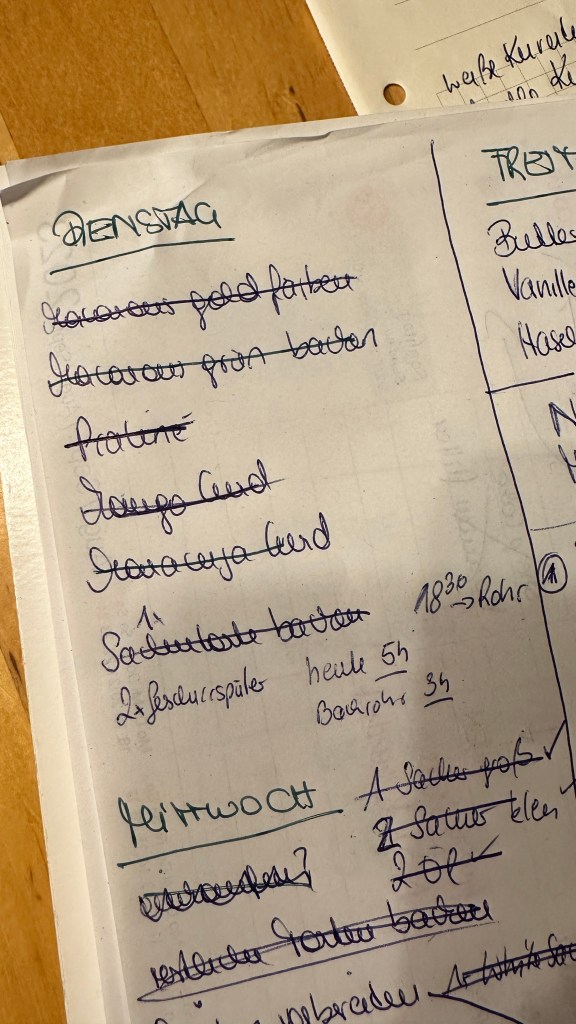 weiße Kuv
DIENSTAG
Macarons gold färben
Macarons grün backen
Praliné
Mango Curd
Maracuja Curd
1x
Sachertorte backen
18³⁰ → Rohr
2x Geschirrspüler
heute 5h
Backrohr 3h
MITTWOCH
1 Sacher groß ✓
2 Sacher klein ✓
2 Öl ✓
einkaufen?
restliche Torten backen
vorbereiten
1x White
FREIT
Butter
Vanille
Hasel
N
1